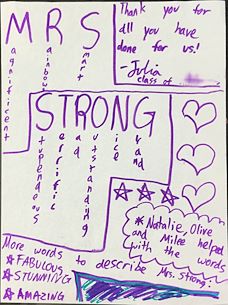 MRS
Magnificent
Rainbow
Smart
Thank you for
all you have
done for us!
-Julia
class of
STRONG
Stupendous
Terrific
Rad
Outstanding
Nice
Grand
*Natalie, Olive
and Milee helped
with the words
More words to describe Mrs. Strong:
FABULOUS
STUNNING
AMAZING